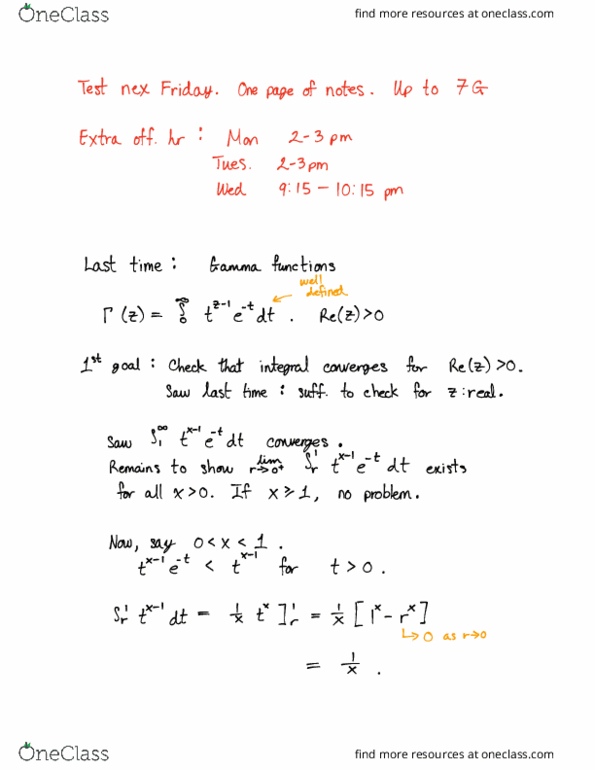 OneClass
find more resources at oneclass.com
Test nex Friday. One page of notes. Up to 7G
Extra off. hr : Mon 2-3 pm
Tues. 2-3 pm
Wed 9:15 - 10:15 pm
Last time : Gamma functions
well defined
Γ(z) = ∫₀^∞ t^{z-1} e^{-t} dt . Re(z) > 0
1st goal : Check that integral converges for Re(z) > 0.
Saw last time : suff. to check for z : real.
Saw ∫₁^∞ t^{x-1} e^{-t} dt converges .
Remains to show lim_{r→0⁺} ∫ᵣ¹ t^{x-1} e^{-t} dt exists
for all x > 0. If x ⩾ 1, no problem.
Now, say 0 < x < 1 .
t^{x-1} e^{-t} < t^{x-1} for t > 0 .
∫ᵣ¹ t^{x-1} dt = 1/x t^x ]ᵣ¹ = 1/x [ 1^x - r^x ]
↳ 0 as r→0
= 1/x .
OneClass
find more resources at oneclass.com